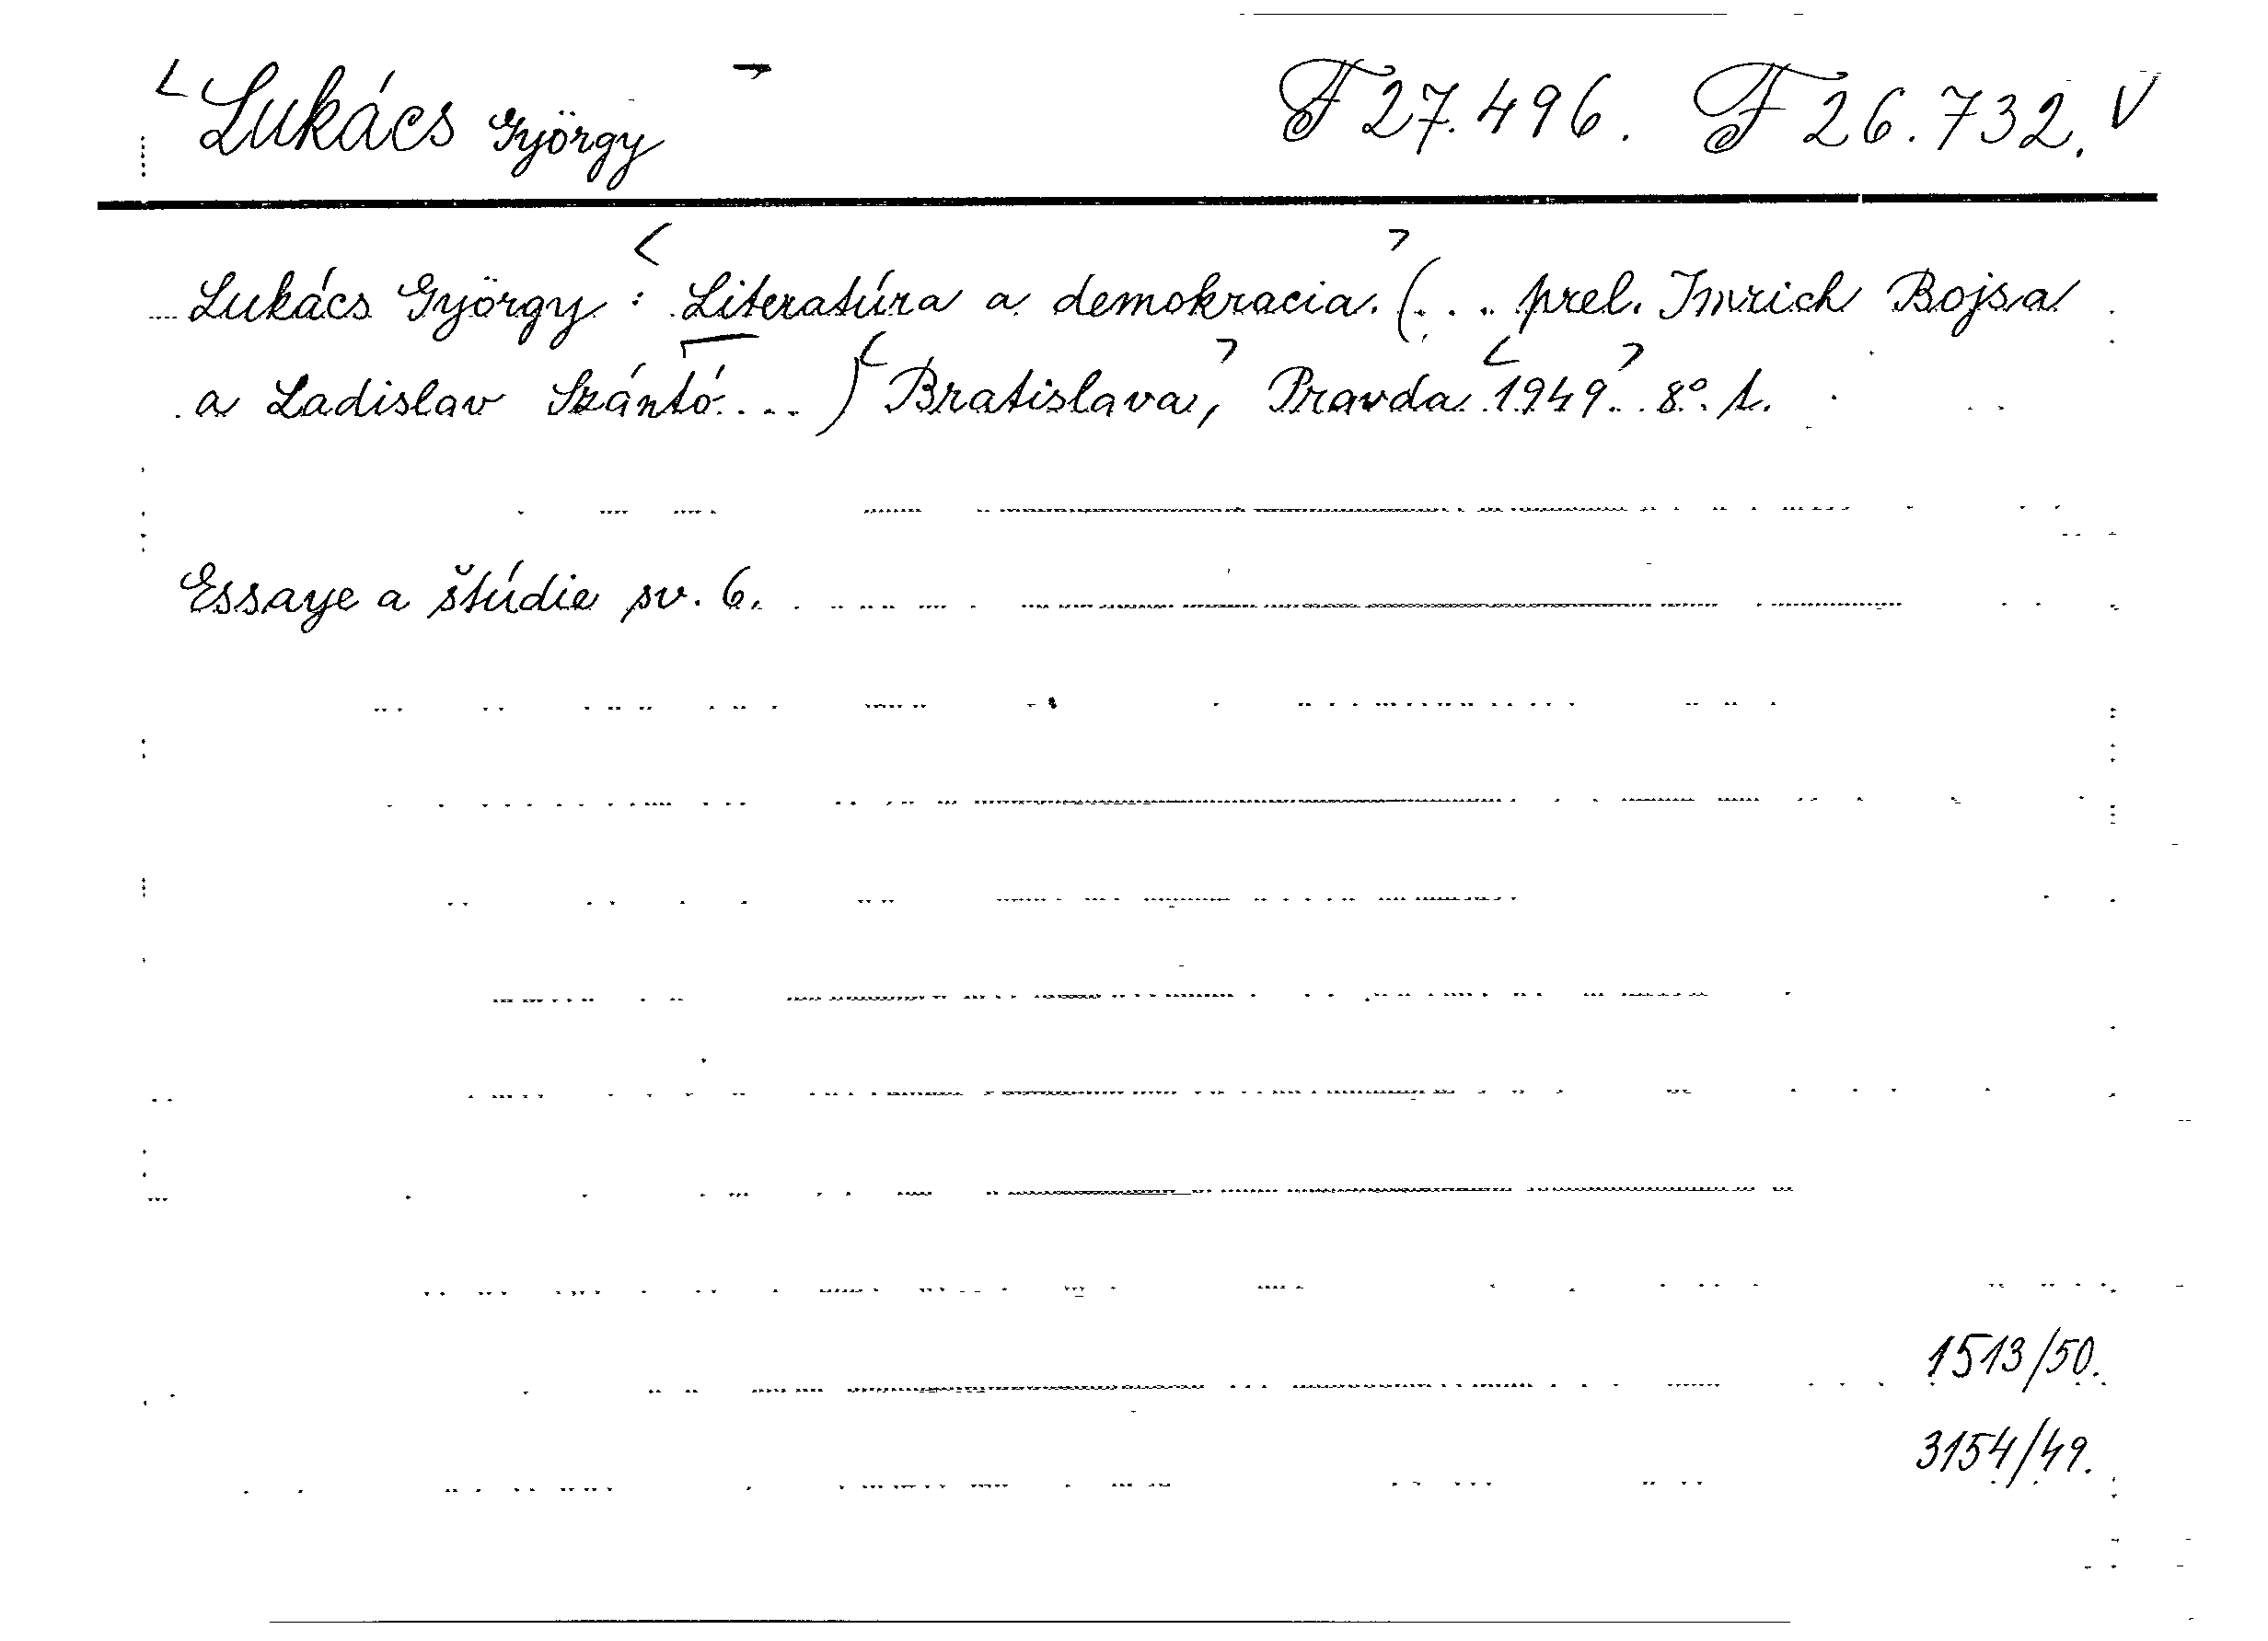 Lukács György F 27.496. F 26.732. V
Lukács György: Literatúra a demokracia. (... prel. Imrich Bojsa
a Ladislav Szántó....) Bratislava, Pravda 1949. 8°. 1.
Essaye a štúdie sv. 6.
1513/50.
3154/49.